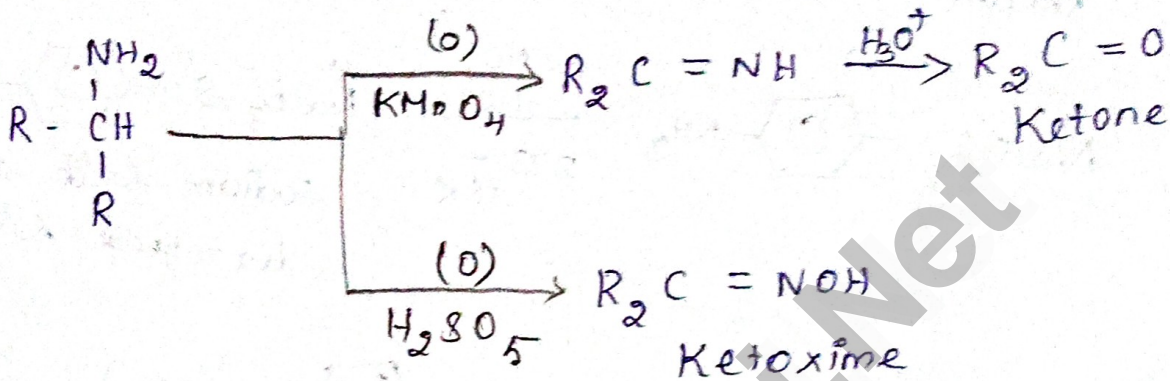 NH₂
R - CH
R
(O)
KMnO₄
R₂ C = NH
H₃O⁺
R₂ C = O
Ketone
(O)
H₂SO₅
R₂ C = NOH
Ketoxime
Net